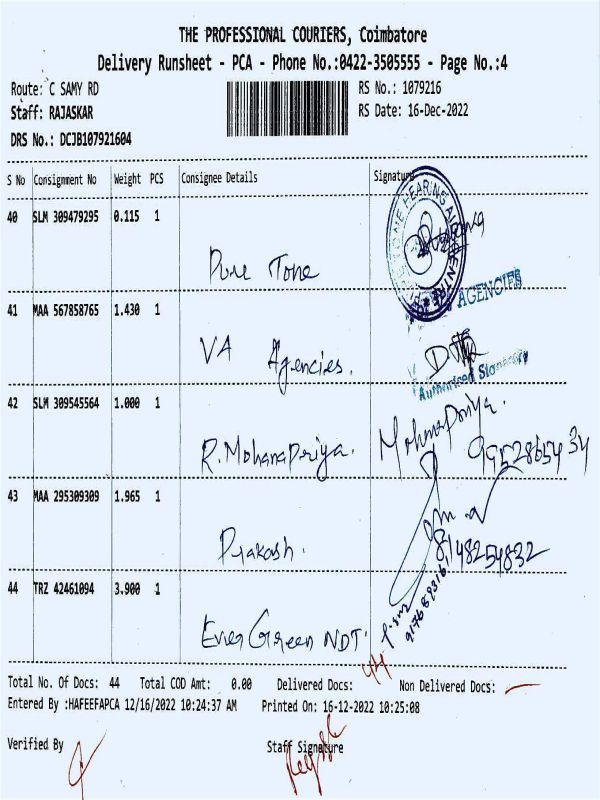 THE PROFESSIONAL COURIERS, Coimbatore
Delivery Runsheet - PCA - Phone No.:0422-3505555 - Page No.:4
Route: C SAMY RD
RS No.: 1079216
Staff: RAJASKAR
RS Date: 16-Dec-2022
DRS No.: DCJB107921604
S No Consignment No Weight PCS Consignee Details Signature
40 SLM 309479295 0.115 1
Pure Tone
HEARING AID CENTRE
41 MAA 567858765 1.430 1
AGENCIES
VA Agencies.
Authorised Signatory
42 SLM 309545564 1.000 1
R.MohanaPriya. MohanaPriya.
9952865434
43 MAA 295309309 1.965 1
Prakash.
8148254832
44 TRZ 42461094 3.900 1
EverGreen NDT.
Total No. Of Docs: 44 Total COD Amt: 0.00 Delivered Docs: 44 Non Delivered Docs: —
Entered By :HAFEEFAPCA 12/16/2022 10:24:37 AM Printed On: 16-12-2022 10:25:08
Verified By Staff Signature